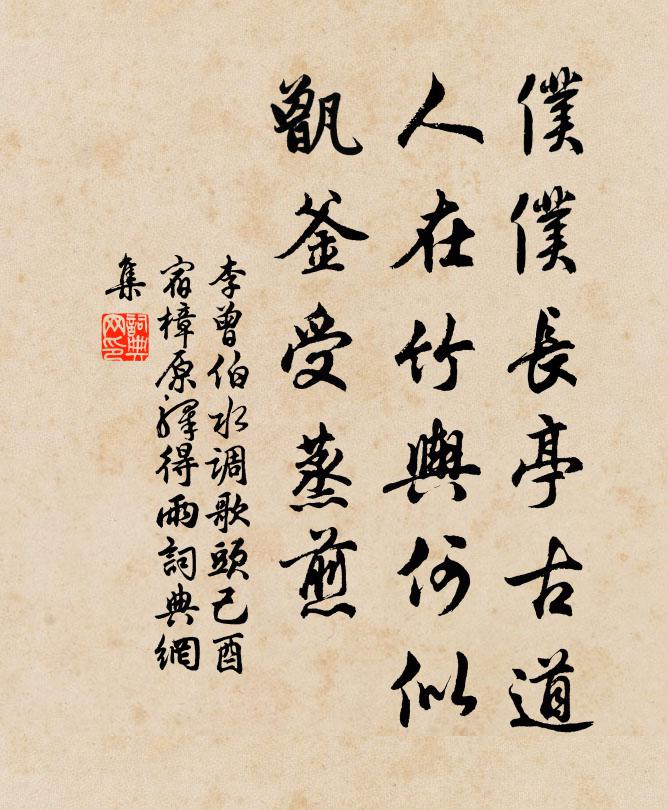 僕僕長亭古道
人在竹輿何似
甑釜受蒸煎
李曾伯水调歌頭己酉
宿樟原驛得雨詞典網
集
詞典網印